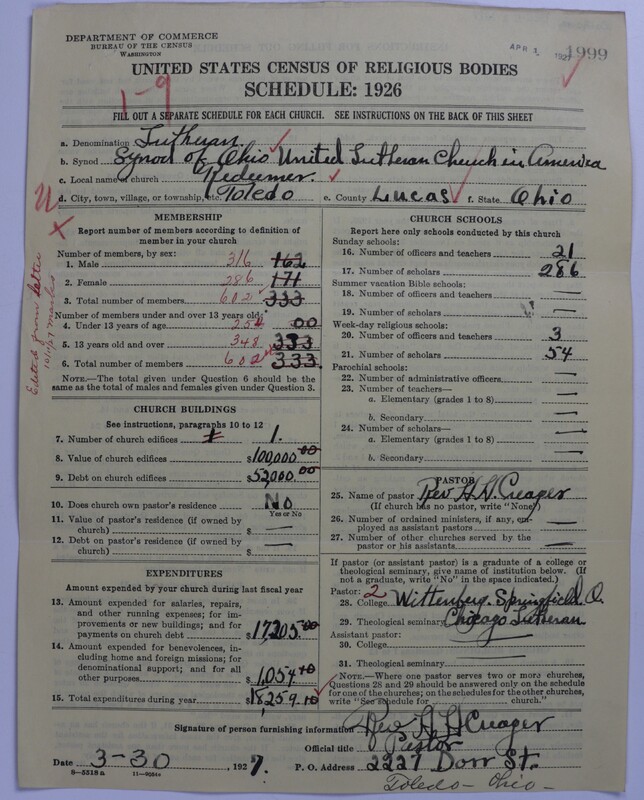 DEPARTMENT OF COMMERCE
BUREAU OF THE CENSUS
WASHINGTON
APR 1927 1999
UNITED STATES CENSUS OF RELIGIOUS BODIES
SCHEDULE: 1926
1-9
FILL OUT A SEPARATE SCHEDULE FOR EACH CHURCH. SEE INSTRUCTIONS ON THE BACK OF THIS SHEET
a. Denomination Lutheran
b. Synod Synod of Ohio United Lutheran Church in America
c. Local name of church Redeemer.
d. City, town, village, or township, etc. Toledo e. County Lucas f. State Ohio
MEMBERSHIP
Report number of members according to definition of member in your church
Number of members, by sex:
1. Male 316 162
2. Female 286 171
3. Total number of members 602 333
Number of members under and over 13 years old:
4. Under 13 years of age 254 00
5. 13 years old and over 348 333
6. Total number of members 602 333
NOTE.—The total given under Question 6 should be the same as the total of males and females given under Question 3.
Edited from letter
CHURCH BUILDINGS
See instructions, paragraphs 10 to 12
7. Number of church edifices 1 1.
8. Value of church edifices $100,000.00
9. Debt on church edifices $52,000.00
10. Does church own pastor's residence No
Yes or No
11. Value of pastor's residence (if owned by church) $ —
12. Debt on pastor's residence (if owned by church) $ —
EXPENDITURES
Amount expended by your church during last fiscal year
13. Amount expended for salaries, repairs, and other running expenses; for improvements or new buildings; and for payments on church debt $17,205.00
14. Amount expended for benevolences, including home and foreign missions; for denominational support; and for all other purposes $1,054.10
15. Total expenditures during year $18,259.10
CHURCH SCHOOLS
Report here only schools conducted by this church
Sunday schools:
16. Number of officers and teachers 21
17. Number of scholars 286
Summer vacation Bible schools:
18. Number of officers and teachers —
19. Number of scholars —
Week-day religious schools:
20. Number of officers and teachers 3
21. Number of scholars 54
Parochial schools:
22. Number of administrative officers —
23. Number of teachers—
a. Elementary (grades 1 to 8) —
b. Secondary —
24. Number of scholars—
a. Elementary (grades 1 to 8) —
b. Secondary —
PASTOR
25. Name of pastor Rev H. H. Creager
(If church has no pastor, write "None")
26. Number of ordained ministers, if any, employed as assistant pastors —
27. Number of other churches served by the pastor or his assistants —
If pastor (or assistant pastor) is a graduate of a college or theological seminary, give name of institution below. (If not a graduate, write "No" in the space indicated.)
Pastor: 2
28. College Wittenberg. Springfield, O.
29. Theological seminary Chicago Lutheran
Assistant pastor:
30. College —
31. Theological seminary —
NOTE.—Where one pastor serves two or more churches, Questions 28 and 29 should be answered only on the schedule for one of the churches; on the schedules for the other churches, write "See schedule for church."
Signature of person furnishing information Rev H H Creager
Official title Pastor
Date 3-30, 1927. P. O. Address 2227 Dorr St.
Toledo - Ohio -
8-5518a 11-9051s